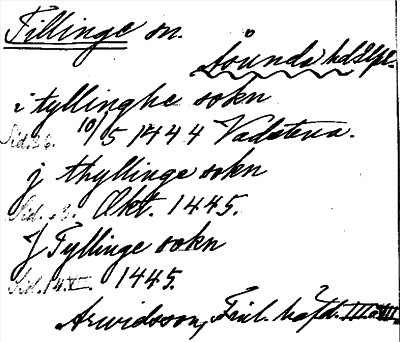 Fillinge sn.
Åkerbo hdÖfl.
i tyllinghe sokn
Sid. 36. 10/5 1444 Vadstena.
j thyllinge sokn
Sid. 3. Okt. 1445.
J Tyllinge sokn
Sid. 14 1445.
Arwidsson, Finl. häfd. III